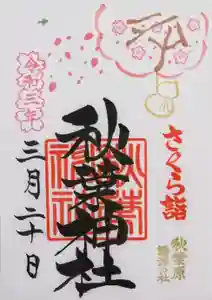 令和三年
三月二十日
秋葉神社
さくら詣
秋葉原